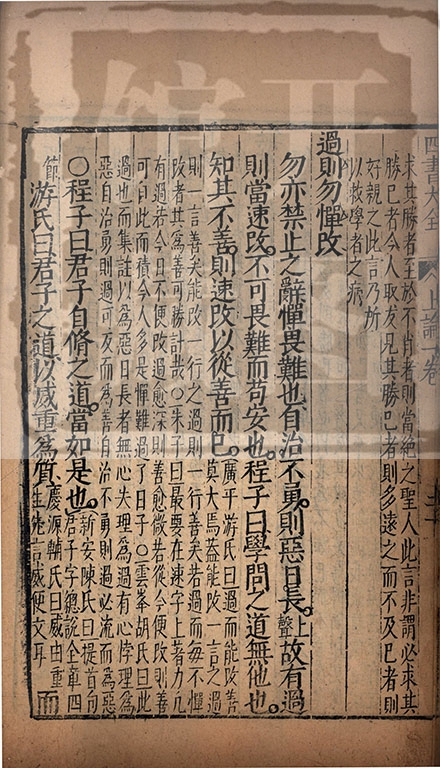 四書大全 上論一卷
求其勝者至於不肖者則當絶之聖人此言非謂必求其
勝己者今人取友見其勝己者則多遠之而不及己者則
好親之此言乃所
以救學者之病
過則勿憚改
勿亦禁止之辭憚畏難也自治不勇則惡日長上聲故有過
則當速改不可畏難而苟安也程子曰學問之道無他也
知其不善則速改以從善而已廣平游氏曰過而能改善
莫大焉蓋能改一言之過
則一言善矣能改一行之過則一行善矣若過而每不憚
改者其為善可勝計哉○朱子曰最要在速字上著力凡
有過若今日不便改過愈深則善愈微若從今便改則善
可自此而積今人多是憚難過了日子○雲峯胡氏曰此
過也而集註以為惡日長者無心失理為過有心悖理為
惡自治勇則過可反而為善自治不勇則過必流而為惡
○程子曰君子自脩之道當如是也新安陳氏曰提首句
君子字總說全章四
節游氏曰君子之道以威重爲質慶源輔氏曰威由重
生先言威便文耳而